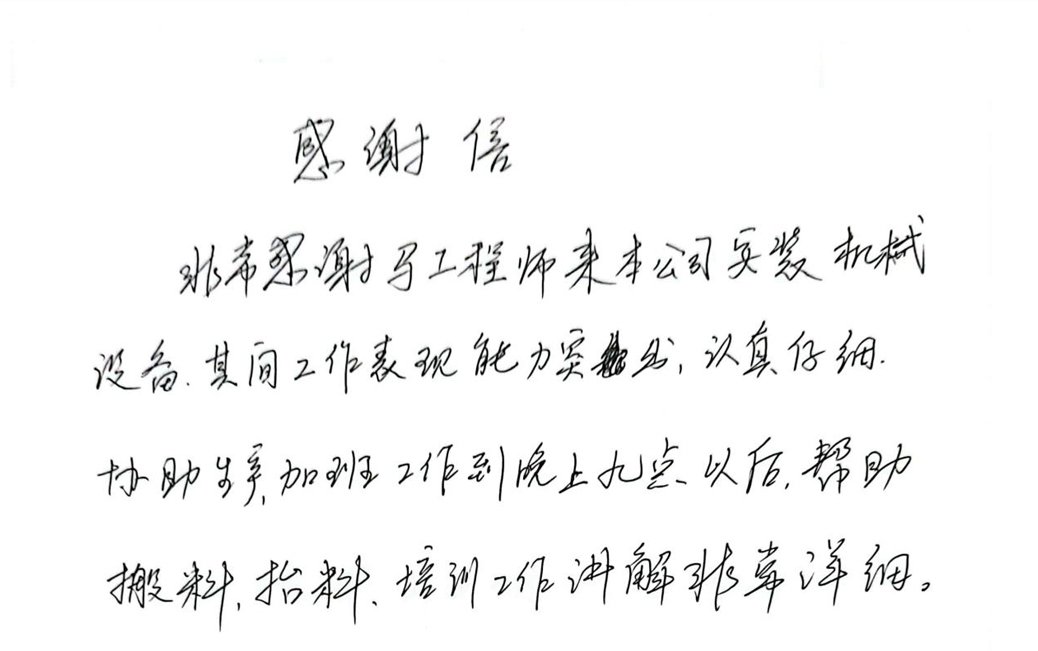 感谢信
非常感谢马工程师来本公司安装机械
设备.其间工作表现能力突出,认真仔细.
协助生产,加班工作到晚上九点以后,帮助
搬料,抬料、培训工作讲解非常详细。